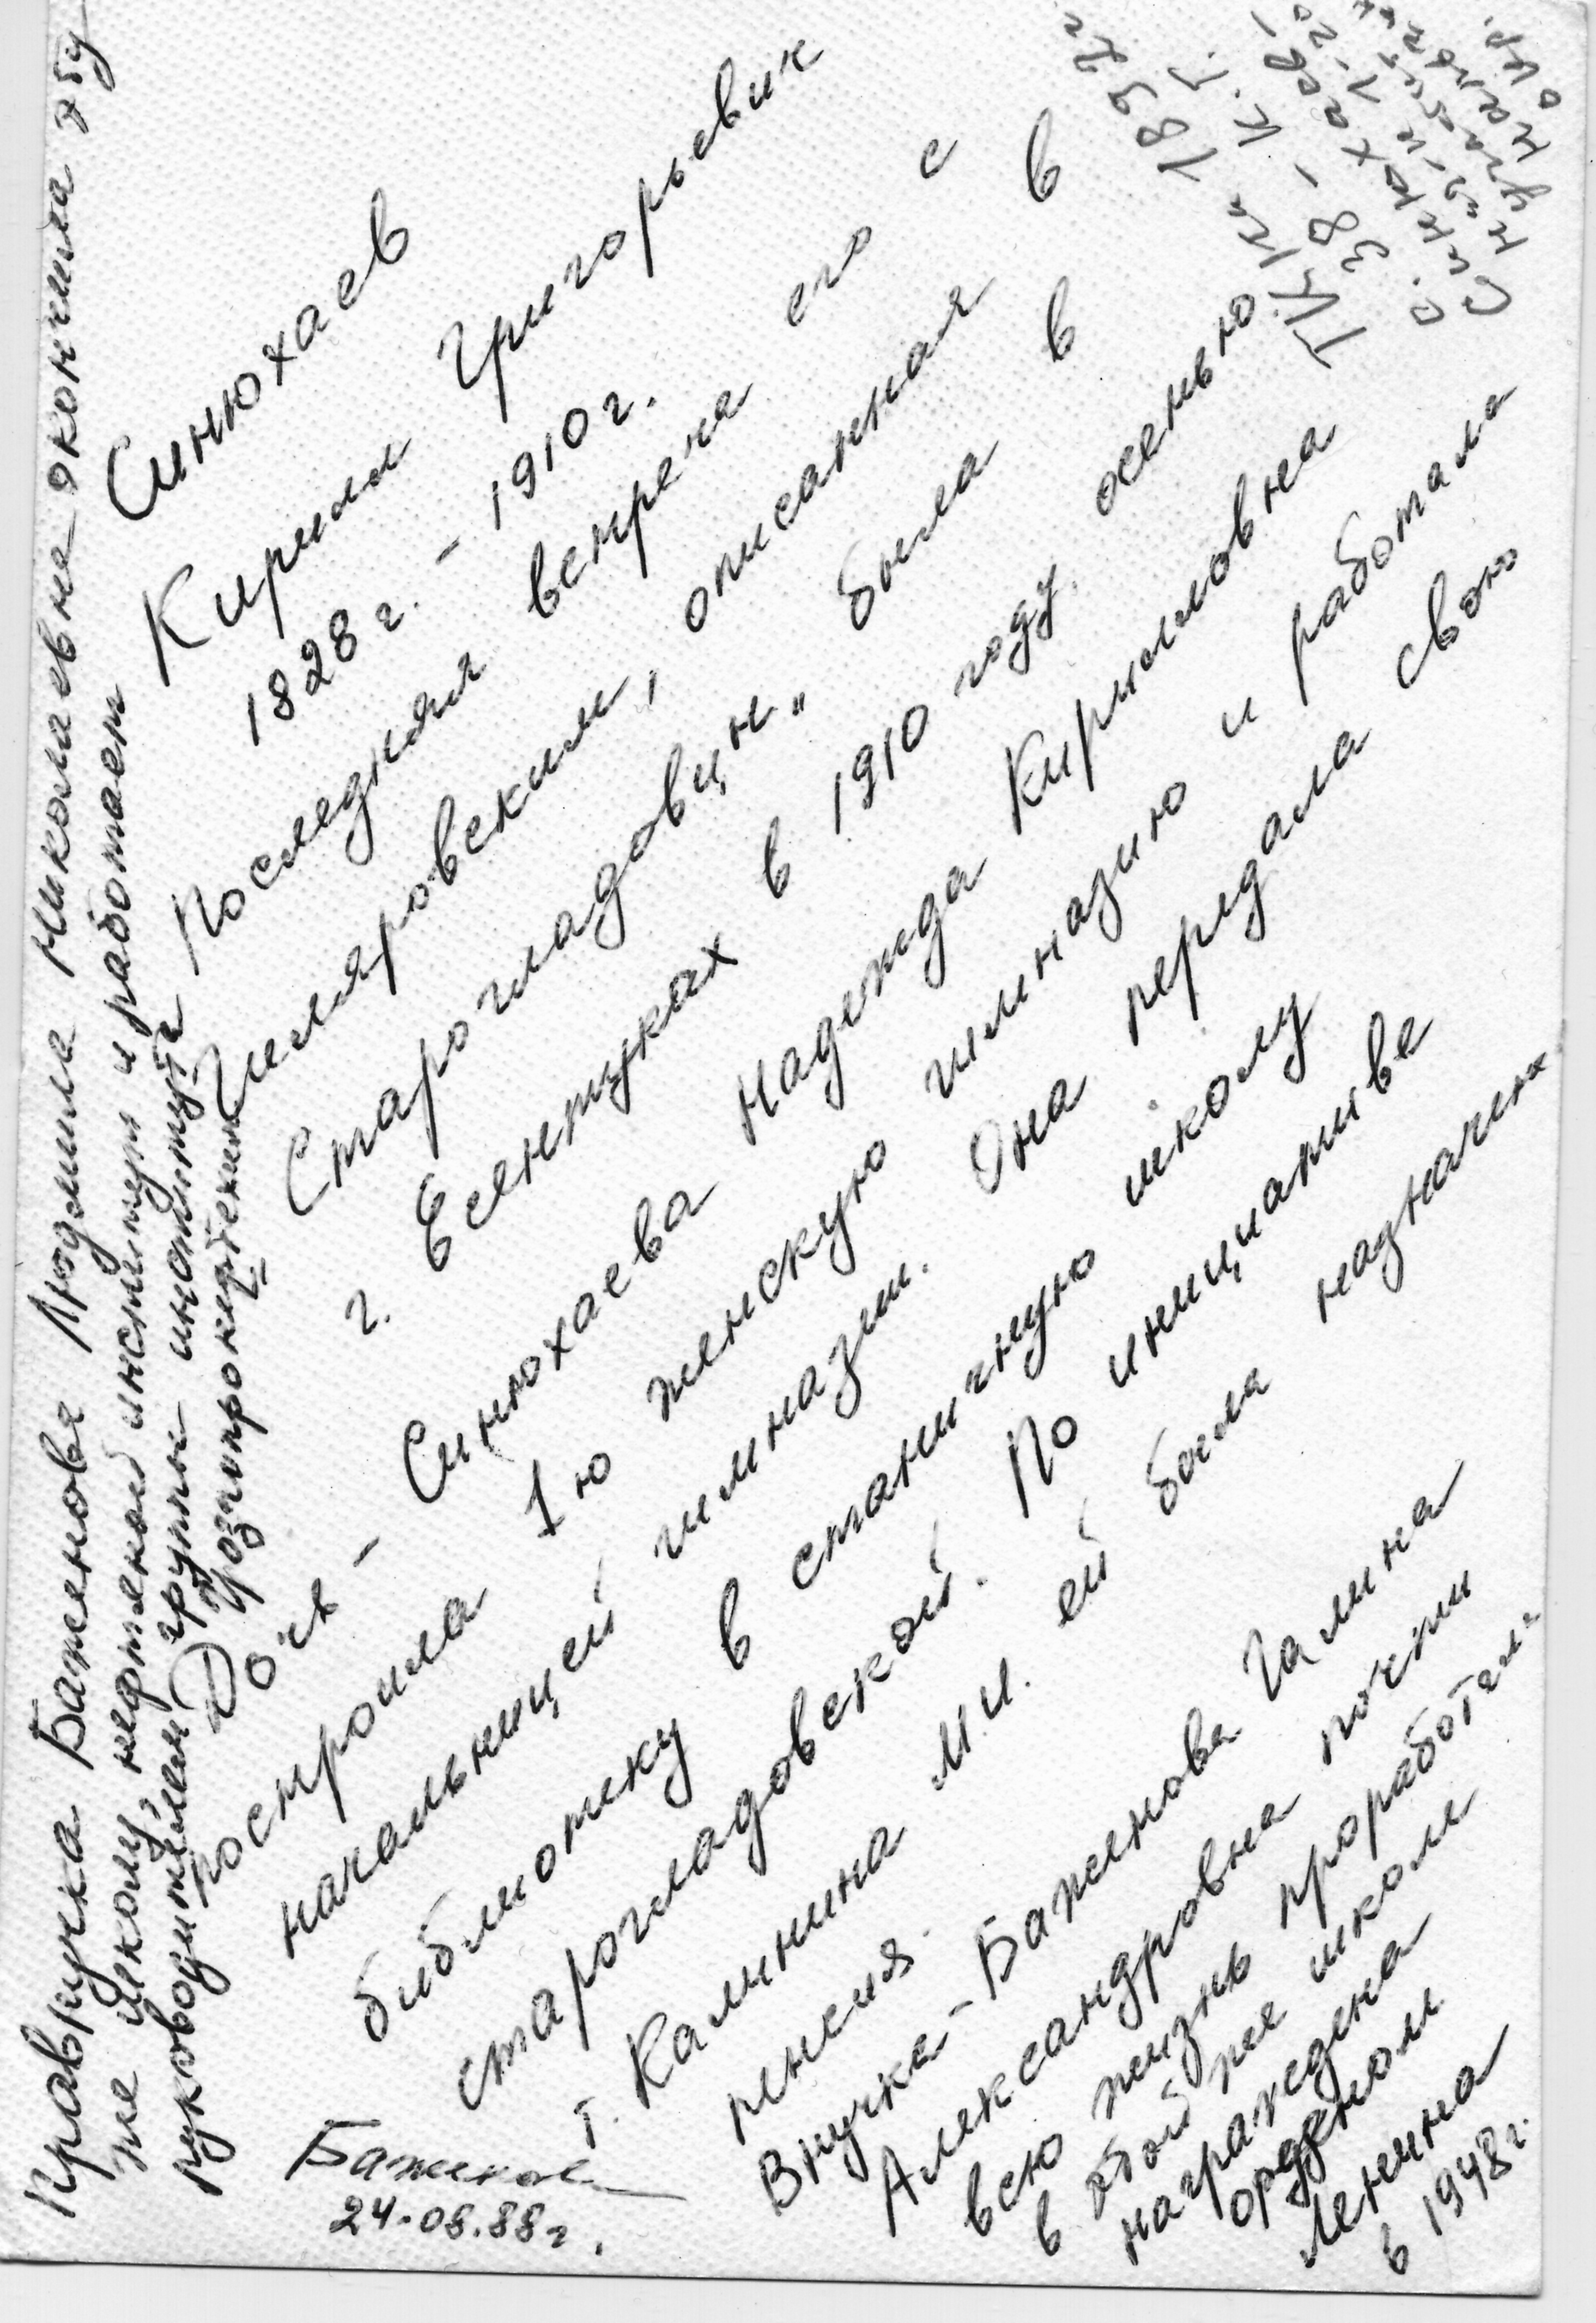 Синюхаев
Кирилл Григорьевич
1828 г. – 1910 г.
Последняя встреча его с
Гиляровским, описанная в
"Старогладовцы" была в
г. Есентуках в 1910 году осенью
Дочь – Синюхаева Надежда Кирилловна
построила 1ю женскую гимназию и работала
начальницей гимназии. Она передала свою
библиотеку в станичную школу
старогладовской. По инициативе
т. Калинина М.И. ей быланазначена
пенсия.
Внучка – Баженова Галина
Александровна почти
всю жизнь проработала
в этой же школе
награждена
орденом
Ленина
в 1948 г.
Правнучка Баженова Людмила Николаевна окончила эту
же школу, нефтяной институт и работает
руководителем группы института
"Грозгипронефтехим"
Баженов
24.08.88 г.
1892 г.
38, к.
Синюхаев